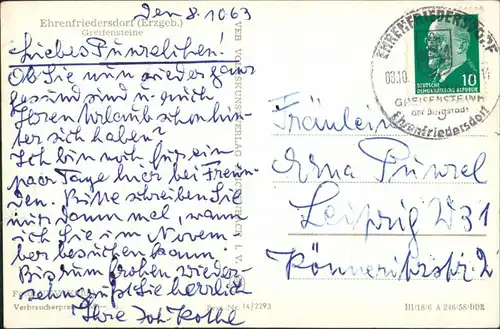 Ehrenfriedersdorf (Erzgeb.)
Greifensteine
den 8.10.63
Liebes Punzelchen!
Ob Sie nun wieder ganz
gesund sind u. auch
Ihren Urlaub schon hin-
ter sich haben?
Ich bin noch für ein
paar Tage hier bei Freun-
den. Bitte schreiben Sie
mir dann mal, wann
ich Sie im Novem
ber besuchen kann.
Bis zum frohen Wieder-
sehn grüßt Sie herzlich
Ihre Rothe
Verbraucherpreis
14/2293
EHRENFRIEDERSDORF
GREIFENSTEINE
der Bergstadt
Ehrenfriedersdorf
DEUTSCHE
DEMOKRATISCHE REPUBLIK
10
Fräulein
Erna Punzel
Leipzig W31
Könneritzstr. 2
III/18/6 A 246/58/DDR